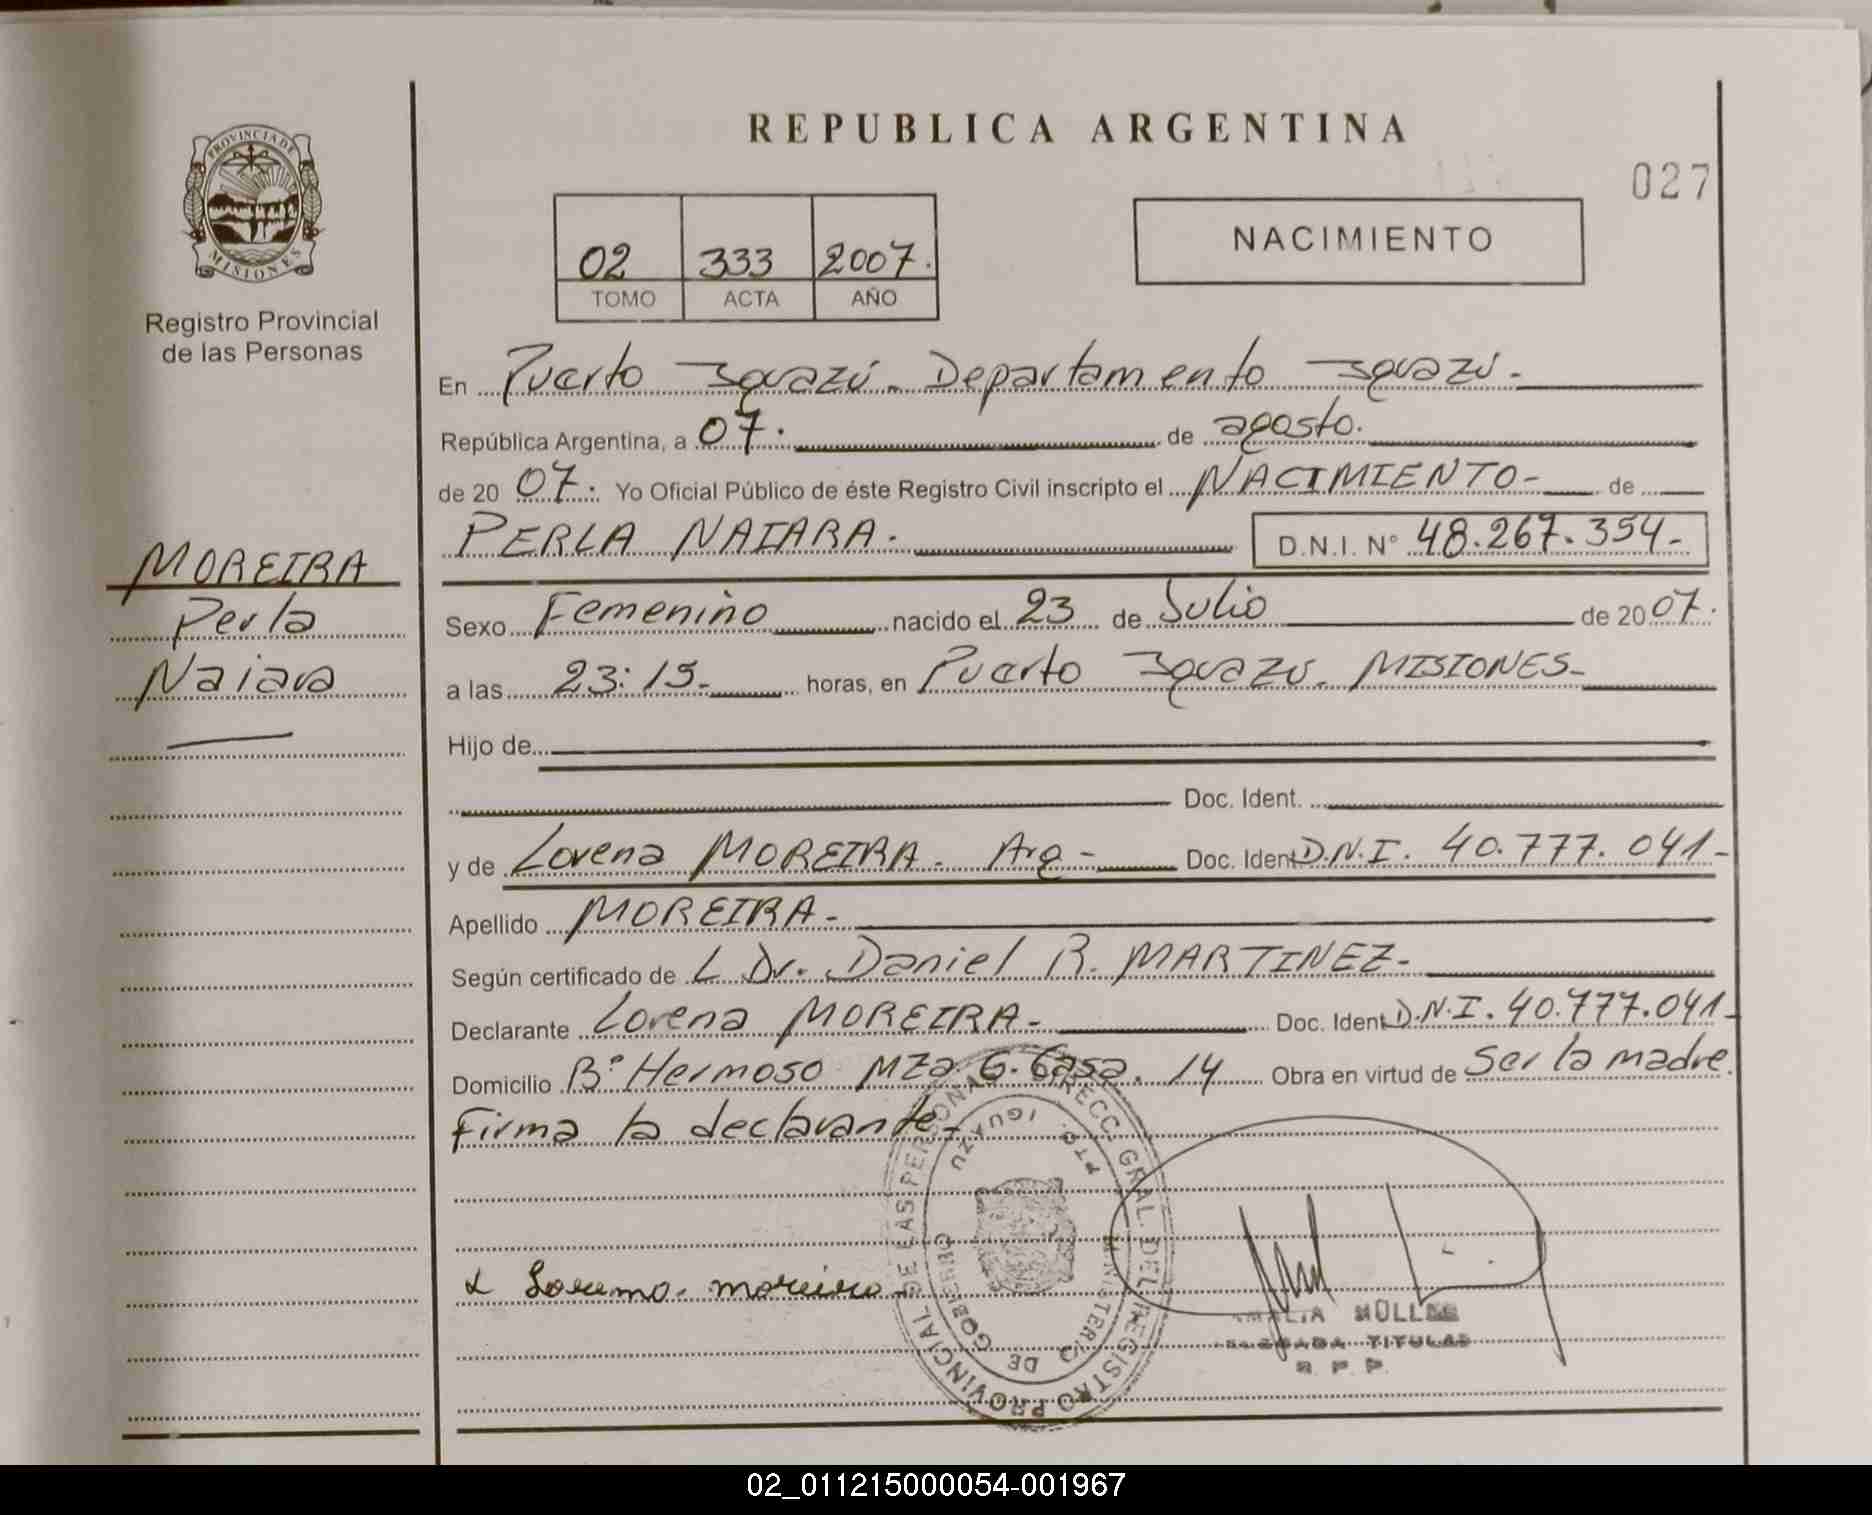 REPUBLICA ARGENTINA
027
PROVINCIA DE MISIONES
Registro Provincial
de las Personas
02 333 2007.
TOMO ACTA AÑO
NACIMIENTO
En Puerto Iguazú. Departamento Iguazú.
República Argentina, a 07. de agosto.
de 20 07. Yo Oficial Público de éste Registro Civil inscripto el NACIMIENTO- de
PERLA NAIARA. D.N.I. N° 48.267.354-
MOREIRA
Perla
Naiara
Sexo Femenino nacido el 23 de Julio de 20 07.
a las 23:15. horas, en Puerto Iguazú. MISIONES-
Hijo de
Doc. Ident.
y de Lorena MOREIRA. Arg- Doc. Ident D.N.I. 40.777.041-
Apellido MOREIRA-
Según certificado de L Dr. Daniel R. MARTINEZ-
Declarante Lorena MOREIRA- Doc. Ident D.N.I. 40.777.041-
Domicilio B° Hermoso MZa G. Casa. 14 Obra en virtud de Ser la madre.
Firma la declarante-
DIRECC. GRAL. DEL REGISTRO PROVINCIAL DE LAS PERSONAS
PTO. IGUAZU
MINISTERIO DE GOBIERNO
Lorena. moreira
MÜLLER
TITULAR
R. P. P.
02_011215000054-001967